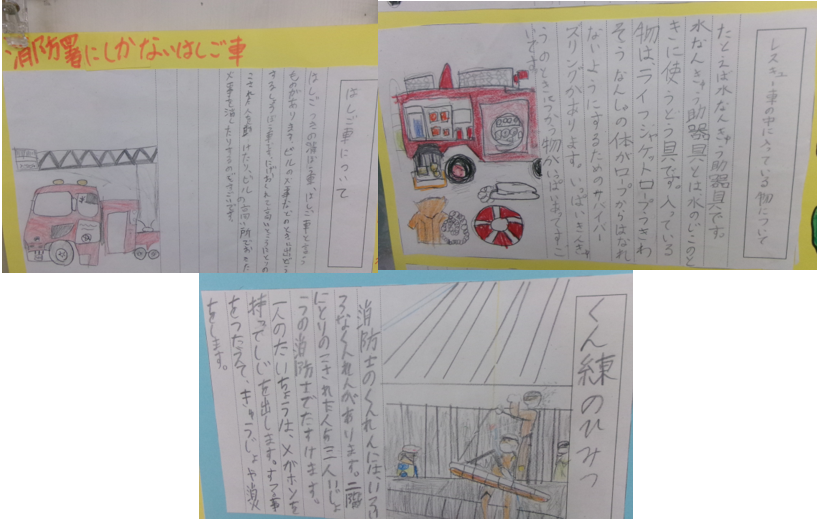 消防署にしかないはしご車
はしご車について
はしごつきの消ぼう車、はしご車と言う
ものがあります。ビルの火事などのときに出どう
高いところにとりの
こされた人を助けたり、ビルの高い所でおきた
火事を消したりする
レスキュー車の中に入っている物について
たとえば水なんきゅう助器具です。
水なんきゅう助器具とは水のじこのと
きに使うどう具です。入っている
物は、ライフジャケットロープうきわ
そうなんしゃの体がロープからはなれ
ないようにするためのサバイバー
ズリングがあります。いっぱいきんきゅ
うのときにつかう物がいっぱいあってすご
いです。
くん練のひみつ
消防士のくんれんには、いろい
ろなくんれんがあります。二階
にとりのこされた人を三人いじょ
うの消防士でたすけます。
一人のたいちょうは、メガホンを
持ってしじを出します。する事
をつたえて、きゅうじょや消火
をします。